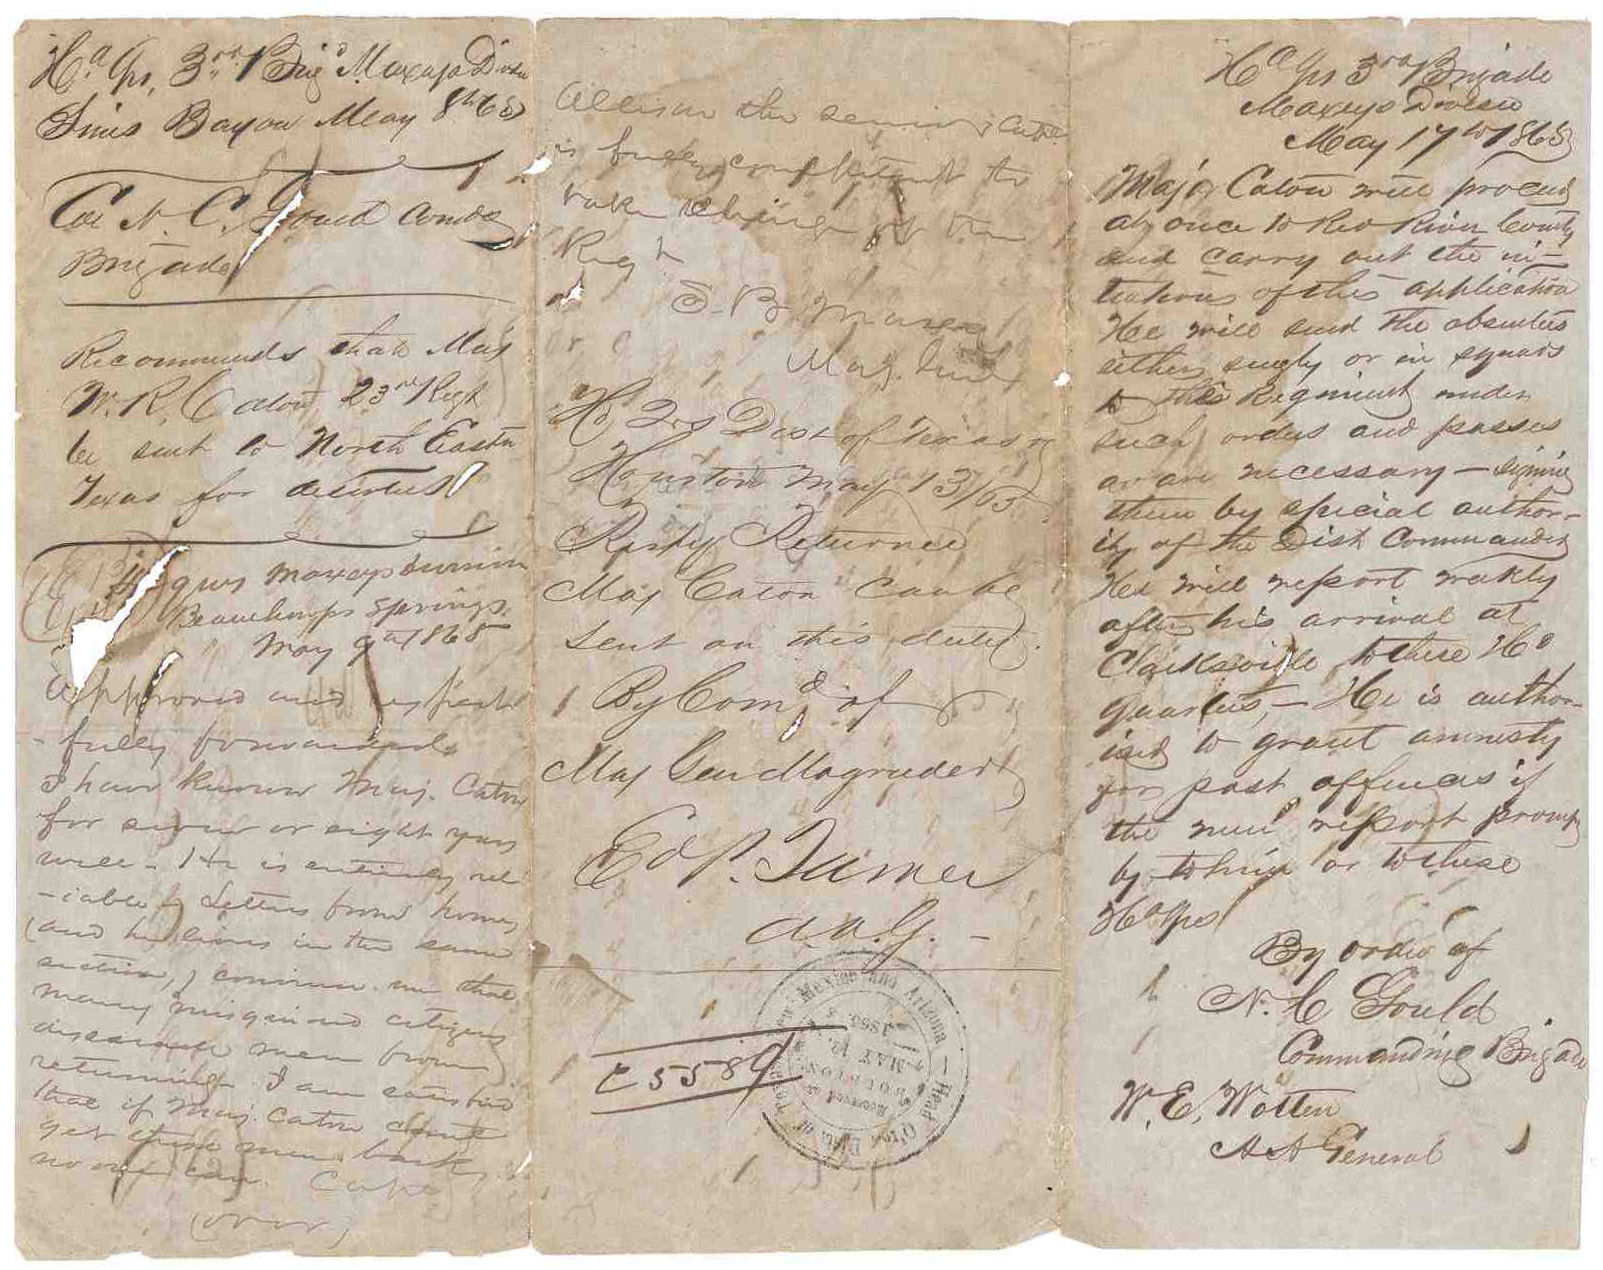 Hd Qrs, 3rd Brig Maxeys Divis
Sims Bayou May 8th 65
Col N. C. Gould Comdg
Brigade
Recommends that Maj
W. R. Caton 23rd Regt
be sent to North Eastn
Texas for deserters
Hd qrs Maxeys Division
Beauchamps Springs
May 9th 1865
Approved and respect
-fully forwarded
I have known Maj. Caton
for seven or eight years
well - He is entirely rel
-iable & Letters from home,
(and he lives in the same
section,) convince me that
many misguided citizens
discourage men from
returning. I am satisfied
that if Maj. Caton can't
get these men back,
no one can. Capt
(over)
Allison the senior Capt.
is fully competent to
take charge of the
Regt
S. B. Maxey
Maj. Genl
Hd Qrs Dist of Texas &c
Houston May 13/65
Respy Returned
Maj Caton can be
sent on this duty.
By Comd of
Maj Gen Magruder
Ed P. Turner
A.A.G. -
E 558
Head Q'rs Dist. of Texas, New Mexico and Arizona
Received at
HOUSTON
MAY 12
1865
Hd Qrs 3rd Brigade
Maxeys Divisin
May 17th 1865
Major Caton will proceed
at once to Red River County
and carry out the in-
tentions of this application
He will send the absentees
either singly or in squads
to this Regiment under
such orders and passes
as are necessary - signing
them by special author-
ity of the Dist Commander
He will report weekly
after his arrival at
Clarksville to these Hd
quarters, - He is author-
ised to grant amnesty
for past offences if
the men report prompt
ly to him or to these
Hd Qrs
By order of
N. C Gould
Commanding Brigade
W. E. Wotten
A A General